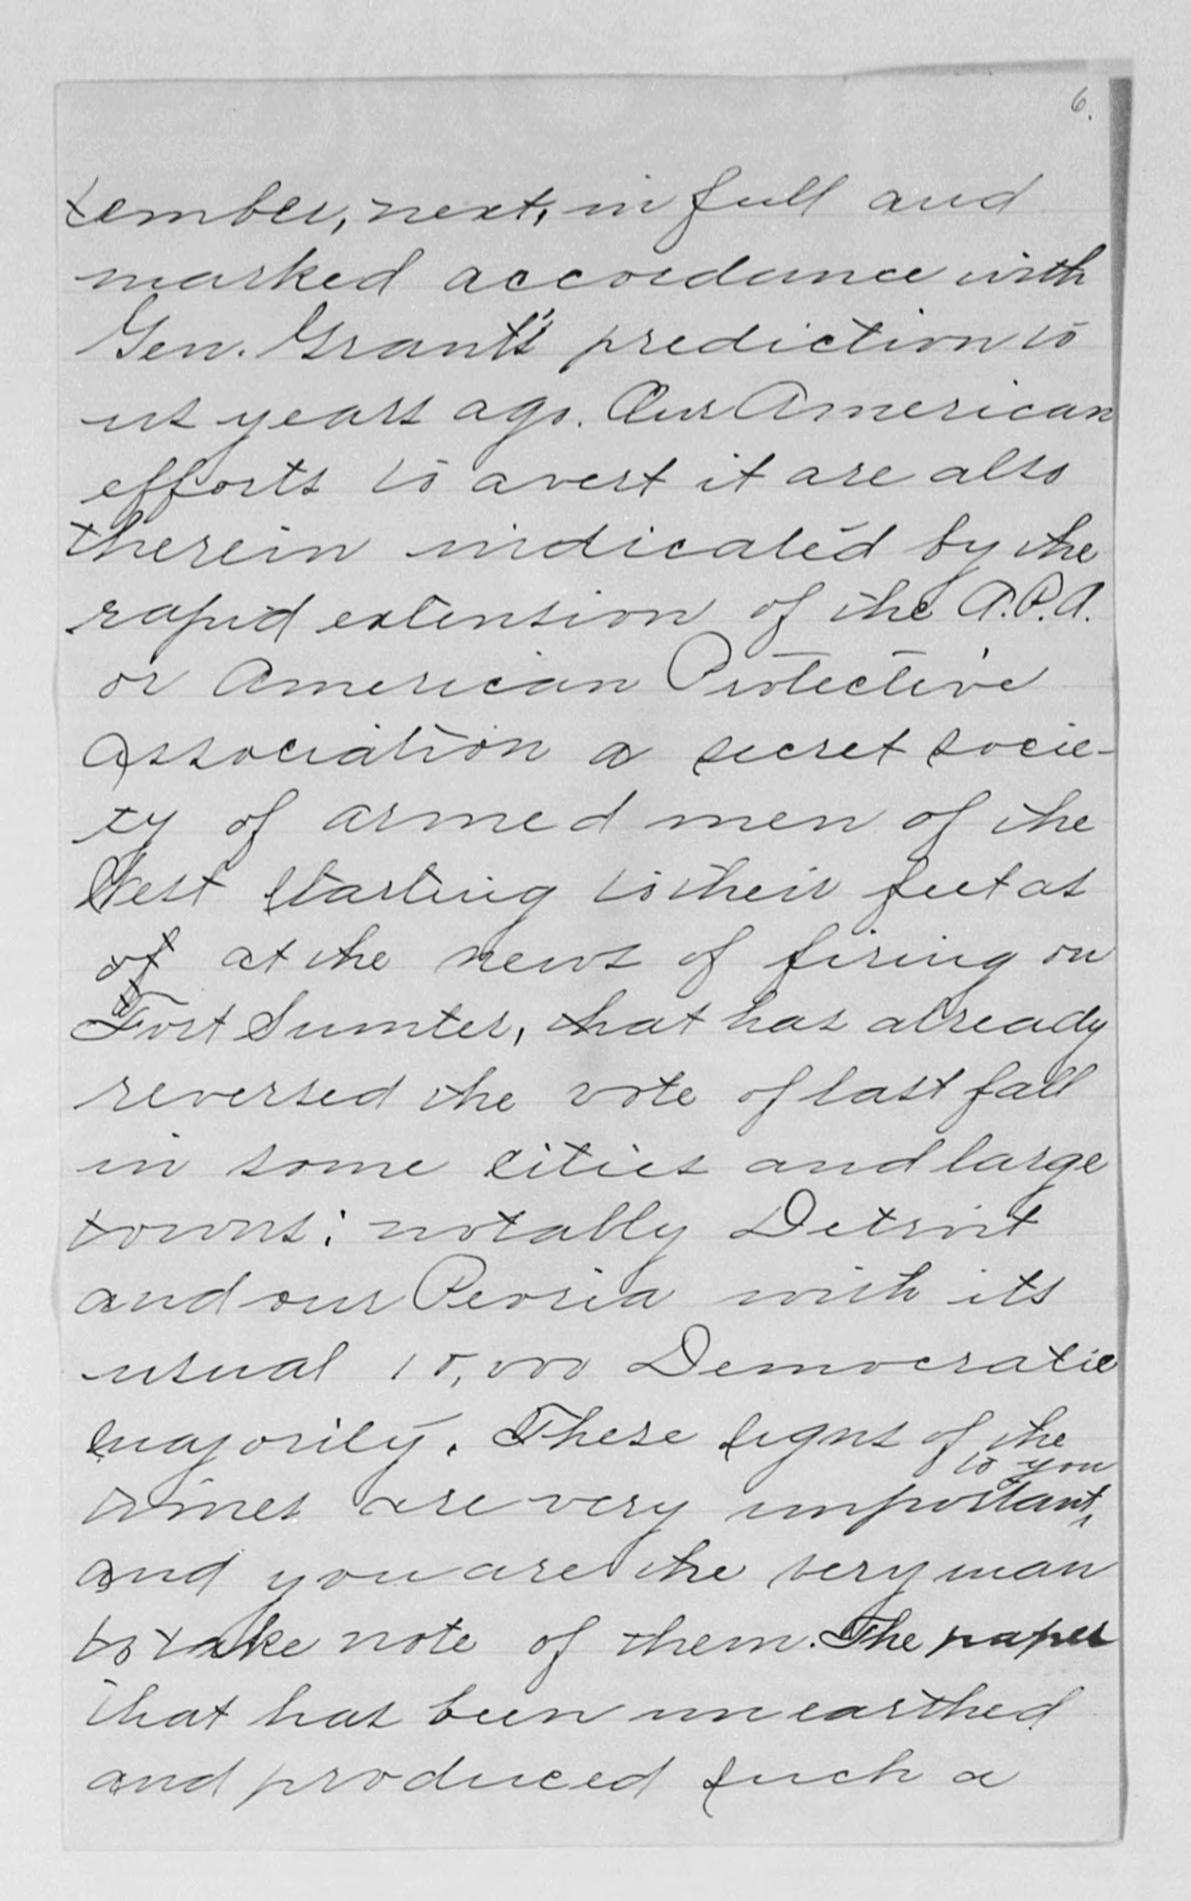 6.
tember, next, in full and
marked accordance with
Gen. Grant's prediction to
us years ago. Our American
efforts to avert it are also
therein indicated by the
rapid extension of the A.P.A.
or American Protective
Association a secret socie-
ty of armed men of the
West starting to their feet as
of at the news of firing on
Fort Sumter, that has already
reversed the vote of last fall
in some cities and large
towns: notably Detroit
and our Peoria with its
usual 15,000 Democratic
majority. These signs of the
to you
times are very important,
and you are the very man
to take note of them. The paper
that has been unearthed
and produced such a